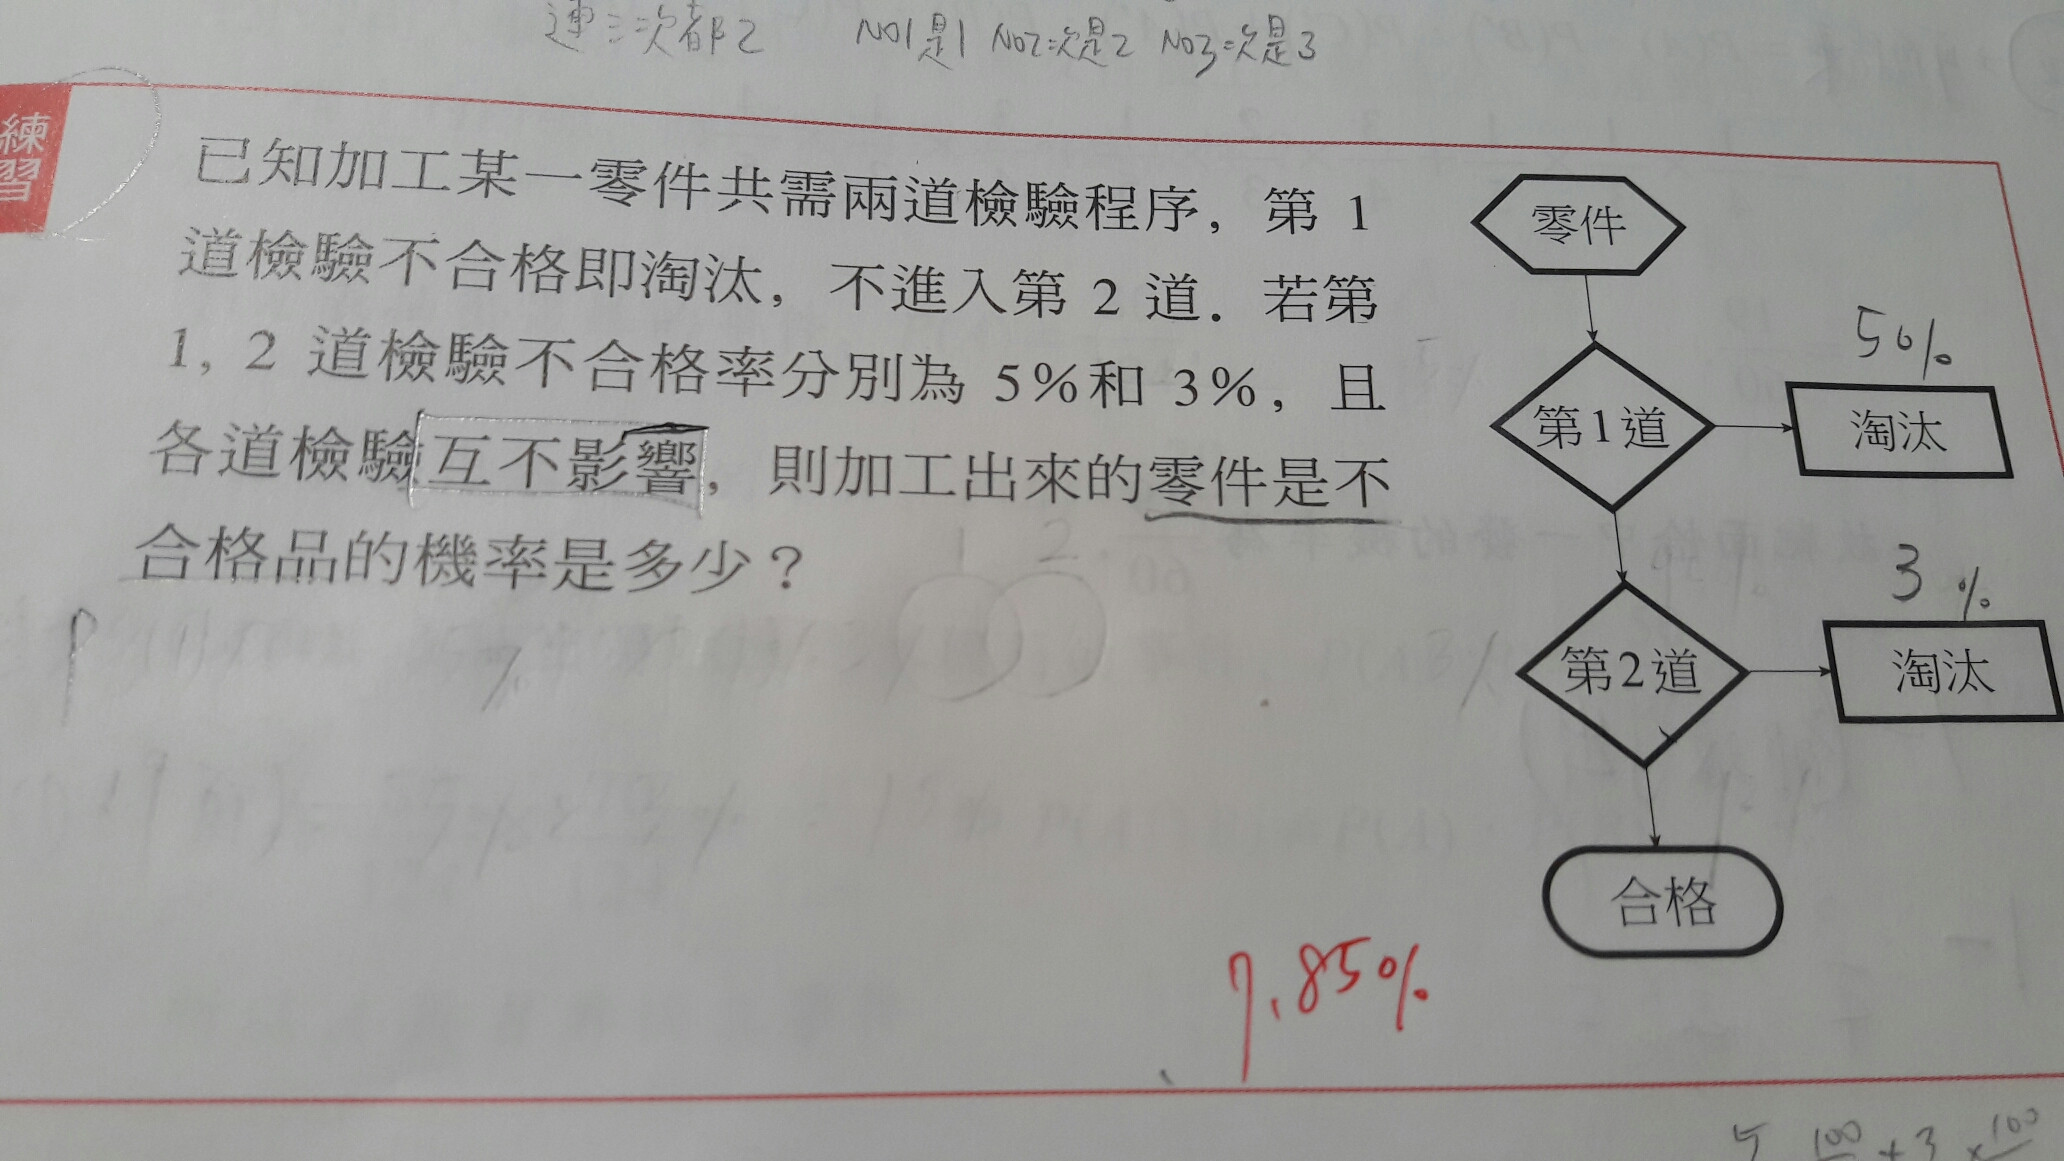 連三次都2 NO1是1 NO2=次是2 NO3=次是3
練習
已知加工某一零件共需兩道檢驗程序，第 1
道檢驗不合格即淘汰，不進入第 2 道．若第
1, 2 道檢驗不合格率分別為 5%和 3%，且
各道檢驗互不影響，則加工出來的零件是不
合格品的機率是多少？
零件
5%
第1道
淘汰
3%
第2道
淘汰
合格
1 2
P
7.85%